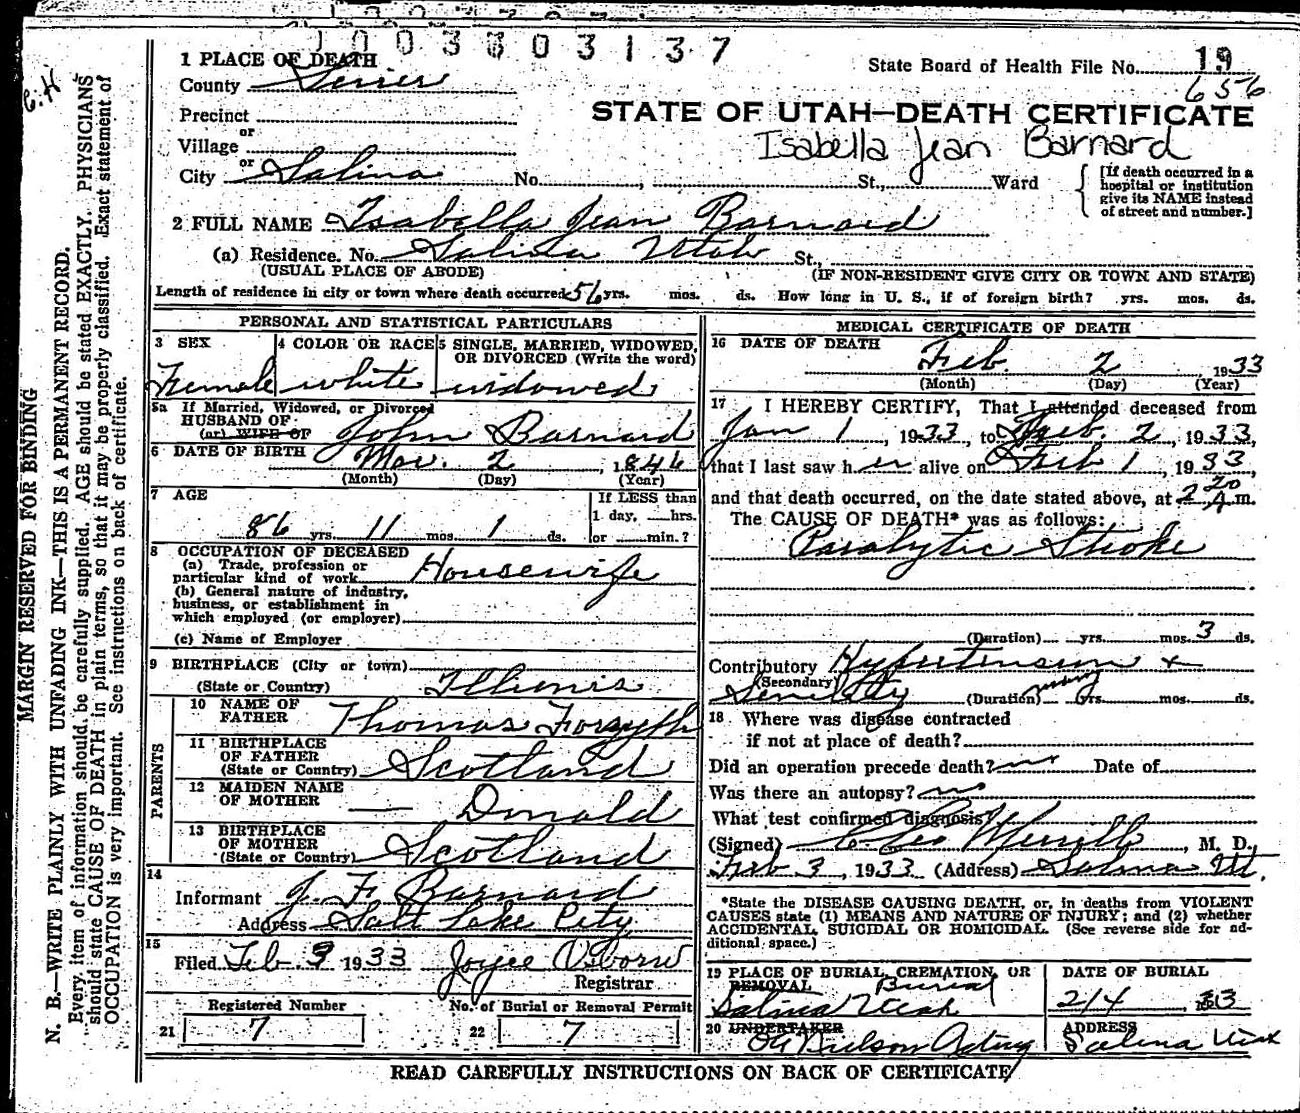 1003303137
1 PLACE OF DEATH
State Board of Health File No. 19
County Sevier
656
Precinct
STATE OF UTAH—DEATH CERTIFICATE
or
Village
Isabella Jean Barnard
or
City Salina No. , St., Ward
[If death occurred in a hospital or institution give its NAME instead of street and number.]
2 FULL NAME Isabella Jean Barnard
(a) Residence. No. Salina Utah St.,
(USUAL PLACE OF ABODE) (IF NON-RESIDENT GIVE CITY OR TOWN AND STATE)
Length of residence in city or town where death occurred 56 yrs. mos. ds. How long in U. S., if of foreign birth? yrs. mos. ds.
PERSONAL AND STATISTICAL PARTICULARS
3 SEX 4 COLOR OR RACE 5 SINGLE, MARRIED, WIDOWED, OR DIVORCED (Write the word)
Female white widowed
5a If Married, Widowed, or Divorced
HUSBAND OF
(or) WIFE OF John Barnard
6 DATE OF BIRTH Mar. 2, 1846
(Month) (Day) (Year)
7 AGE If LESS than
1 day, hrs.
86 yrs. 11 mos. 1 ds. or min.?
8 OCCUPATION OF DECEASED
(a) Trade, profession or
particular kind of work Housewife
(b) General nature of industry,
business, or establishment in
which employed (or employer)
(c) Name of Employer
9 BIRTHPLACE (City or town)
(State or Country) Illinois
PARENTS
10 NAME OF
FATHER Thomas Forsyth
11 BIRTHPLACE
OF FATHER
(State or Country) Scotland
12 MAIDEN NAME
OF MOTHER — Donald
13 BIRTHPLACE
OF MOTHER
(State or Country) Scotland
14
Informant J. F. Barnard
Address Salt Lake City
15
Filed Feb. 3 1933 Joyce Osborn
Registrar
Registered Number No. of Burial or Removal Permit
21 7 22 7
MEDICAL CERTIFICATE OF DEATH
16 DATE OF DEATH
Feb. 2 1933
(Month) (Day) (Year)
17 I HEREBY CERTIFY, That I attended deceased from
Jan 1, 1933, to Feb. 2, 1933,
that I last saw her alive on Feb 1, 1933,
and that death occurred, on the date stated above, at 2 20 A. m.
The CAUSE OF DEATH* was as follows:
Paralytic Stroke
(Duration) yrs. mos. 3 ds.
Contributory Hypertension +
(Secondary)
Senility (Duration) many yrs. mos. ds.
18 Where was disease contracted
if not at place of death?
Did an operation precede death? no Date of
Was there an autopsy? no
What test confirmed diagnosis?
(Signed) Merrill, M. D.,
Feb 3, 1933 (Address) Salina Ut.
*State the DISEASE CAUSING DEATH, or, in deaths from VIOLENT
CAUSES state (1) MEANS AND NATURE OF INJURY; and (2) whether
ACCIDENTAL, SUICIDAL OR HOMICIDAL. (See reverse side for ad-
ditional space.)
19 PLACE OF BURIAL, CREMATION, OR DATE OF BURIAL
REMOVAL Burial
Salina Utah 2/4 1933
20 UNDERTAKER ADDRESS
Nielson Acting Salina Utah
READ CAREFULLY INSTRUCTIONS ON BACK OF CERTIFICATE
MARGIN RESERVED FOR BINDING
N. B.—WRITE PLAINLY WITH UNFADING INK—THIS IS A PERMANENT RECORD.
Every item of information should be carefully supplied. AGE should be stated EXACTLY. PHYSICIANS
should state CAUSE OF DEATH in plain terms, so that it may be properly classified. Exact statement of
OCCUPATION is very important. See instructions on back of certificate.